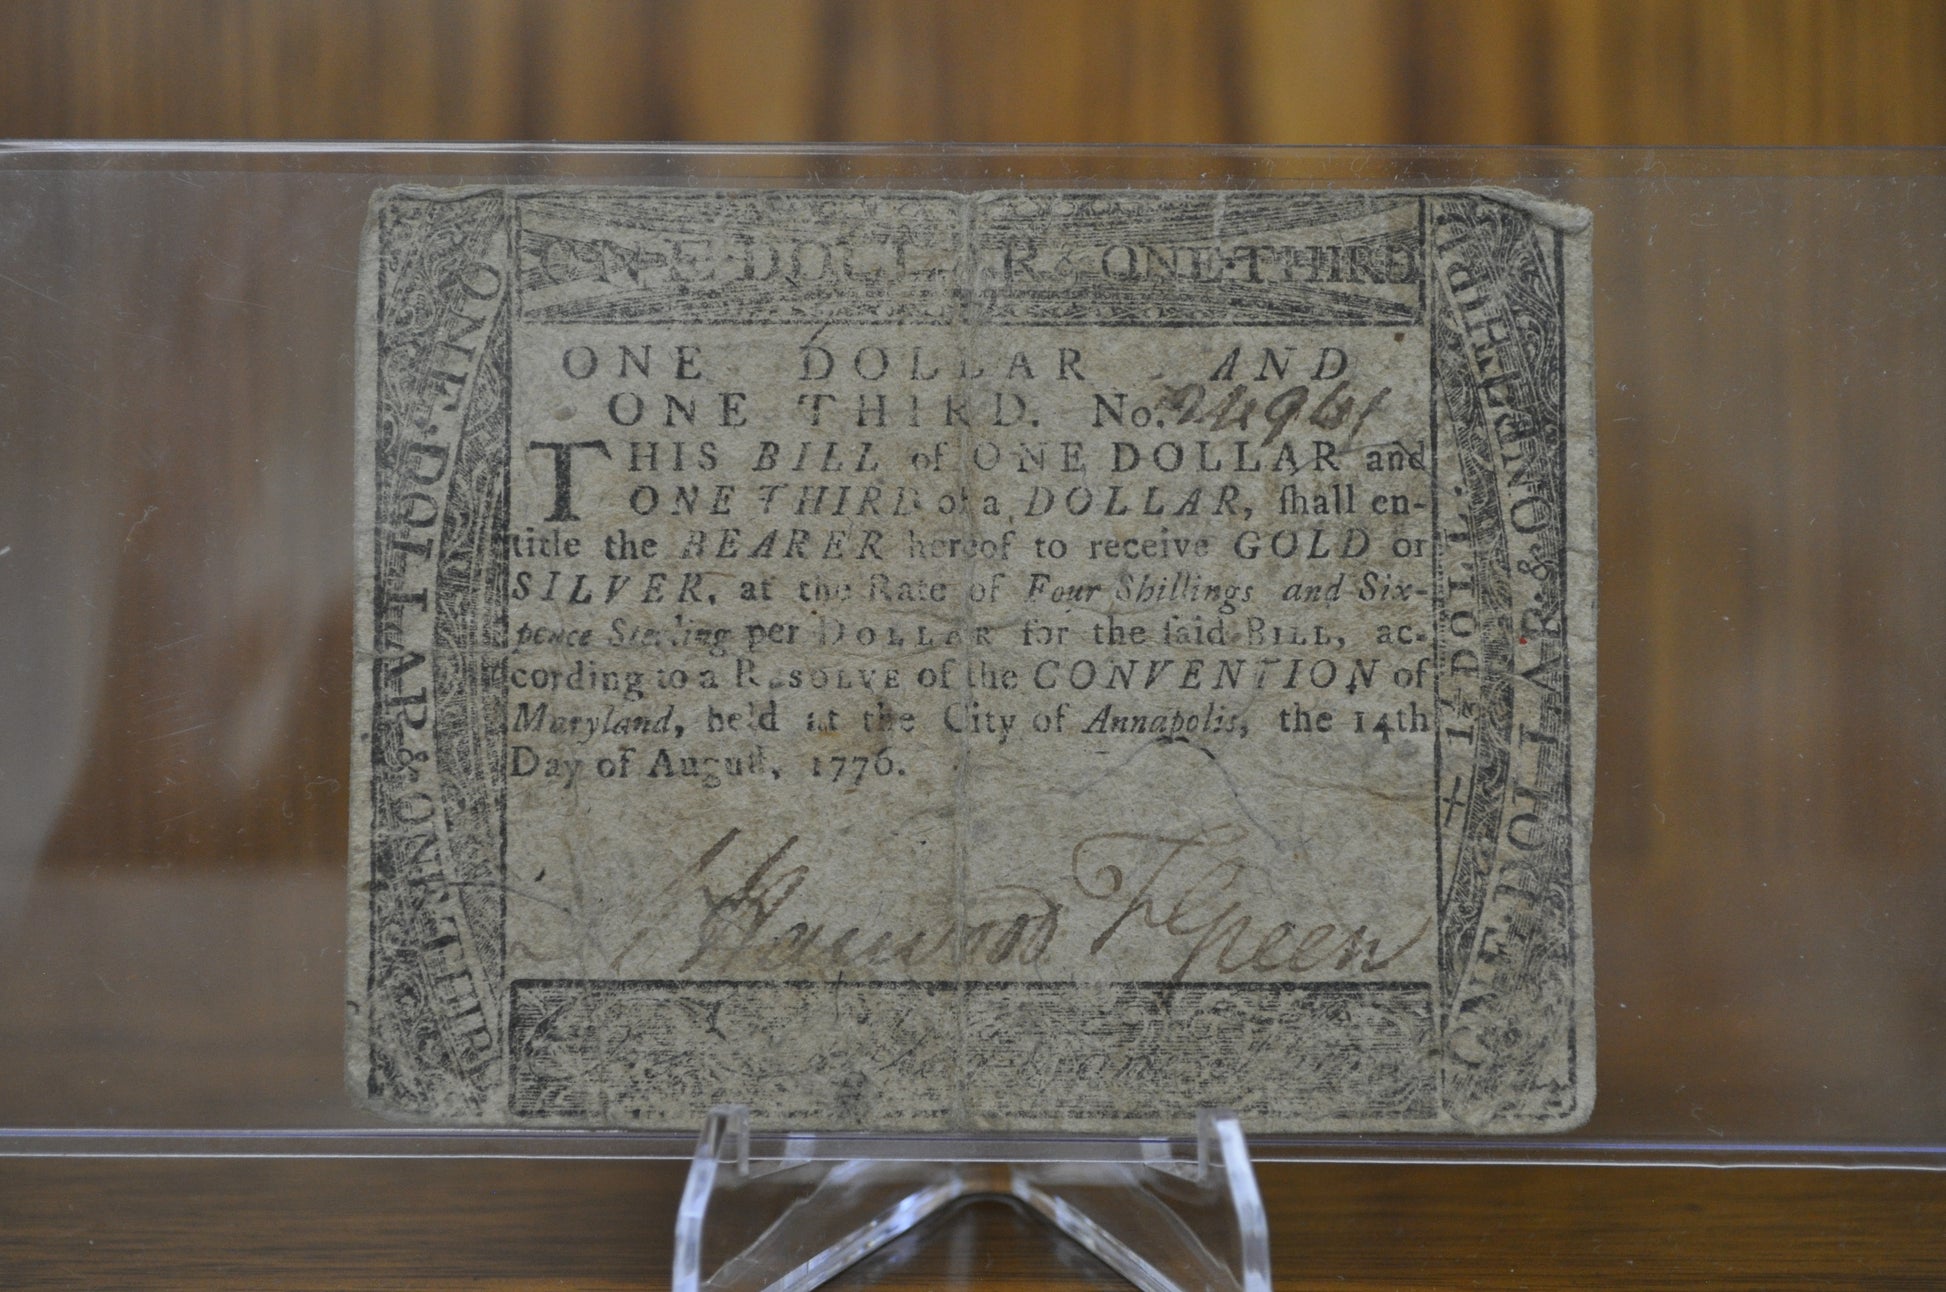 ONE DOLLAR & ONE THIRD
ONE DOLLAR & ONE THIRD
ONE DOLLAR AND
ONE THIRD. No.
THIS BILL of ONE DOLLAR and
ONE THIRD of a DOLLAR, ſhall en-
title the BEARER hereof to receive GOLD or
SILVER, at the Rate of Four Shillings and Six-
pence Sterling per DOLLAR for the ſaid BILL, ac-
cording to a RESOLVE of the CONVENTION of
Maryland, held at the City of Annapolis, the 14th
Day of Auguſt, 1776.
Harwood F Green
1⅓ DOLL.
ONE DOLLAR & ONE THIRD